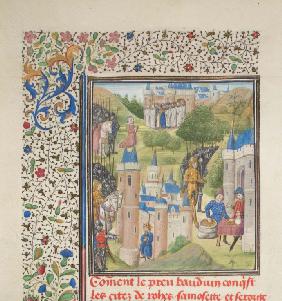 Coment le preu bauduin conqist
les citez de rohes samosette et seroute